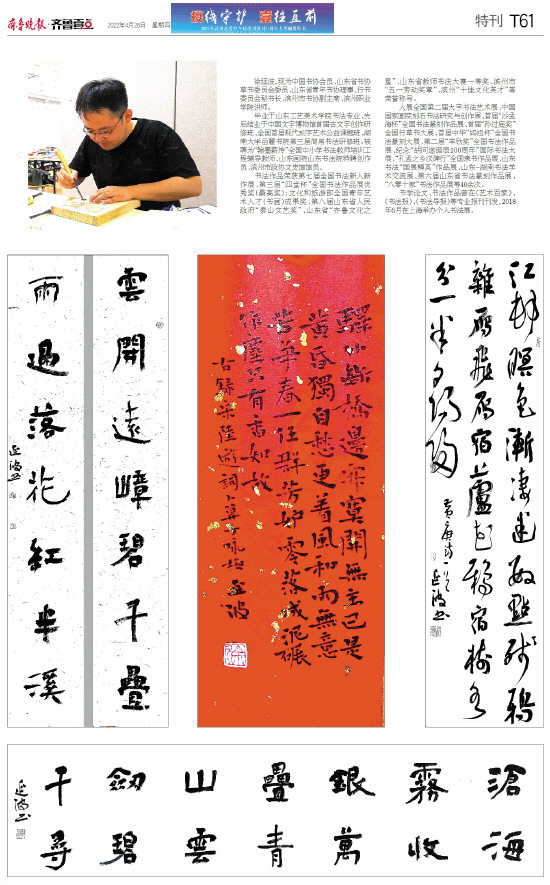 齐鲁晚报·齐鲁壹点
2022年4月28日 星期四
疫线守护 壹往直前
特刊 T61
徐延波,现为中国书协会员,山东省书协
草书委员会委员,山东省青年书协理事,行书
委员会秘书长,滨州市书协副主席,滨州职业
学院讲师。
毕业于山东工艺美术学院书法专业,先
后结业于中国文字博物馆首届古文字创作研
修班,全国首届现代刻字艺术公益课题班,湖南
大学岳麓书院第三届简帛书法研修班,被
聘为“翰墨薪传”全国中小学书法教师培训工
程辅导教师,山东画院山东书法院特聘创作
员,滨州市政协文史馆馆员。
书法作品荣获第七届全国书法新人新
作展,第三届“四堂杯”全国书法作品展优
秀奖(最高奖);文化和旅游部全国青年艺
术人才(书画)成果奖,第八届山东省人民
政府“泰山文艺奖”,山东省“齐鲁文化之
星”,山东省教师书法大赛一等奖,滨州市
“五一劳动奖章”,滨州“十佳文化英才”等
荣誉称号。
入展全国第二届大字书法艺术展,中国
国家画院刻石书法研究与创作展,首届“沙孟
海杯”全国书法篆刻作品展,首届“孙过庭奖”
全国行草书大展,首届中华“妈祖杯”全国书
法篆刻大展,第二届“羊欣奖”全国书法作品
展,纪念“胡问遂诞辰100周年”国际书法大
展,“孔孟之乡汉碑行”全国隶书作品展,山东
书法“国展精英”作品展,山东-湖南书法学
术交流展,第六届山东省书法篆刻作品展,
“八零十家”书法作品展等40余次。
书学论文,书法作品曾在《艺术百家》、
《书法报》、《书法导报》等专业报刊刊发,2018
年6月在上海举办个人书法展。
雲開遠嶂碧千疊
雨過落花紅半溪
延波书
驛外斷橋邊寂寞開無主已是
黃昏獨自愁更著風和雨無意
苦爭春一任群芳妒零落成泥碾
作塵只有香如故
右錄宋陸游詞卜算子詠梅 延波
江村暝色漸淒迷數點殘鴉
雜雁飛雁宿蘆花鴉宿樹各
分一半夕陽歸
黃庚詩一首 延波书
滄海
霧收
銀萬
疊青
山雲
劍碧
千尋
延波书